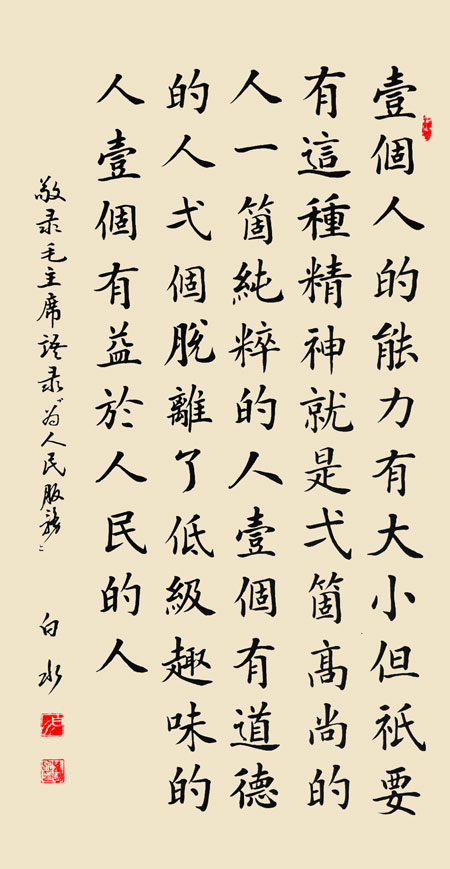 壹個人的能力有大小但祇要
有這種精神就是弌箇髙尚的
人一箇純粹的人壹個有道德
的人弌個脫離了低級趣味的
人壹個有益於人民的人
敬录毛主席语录“为人民服務” 白水